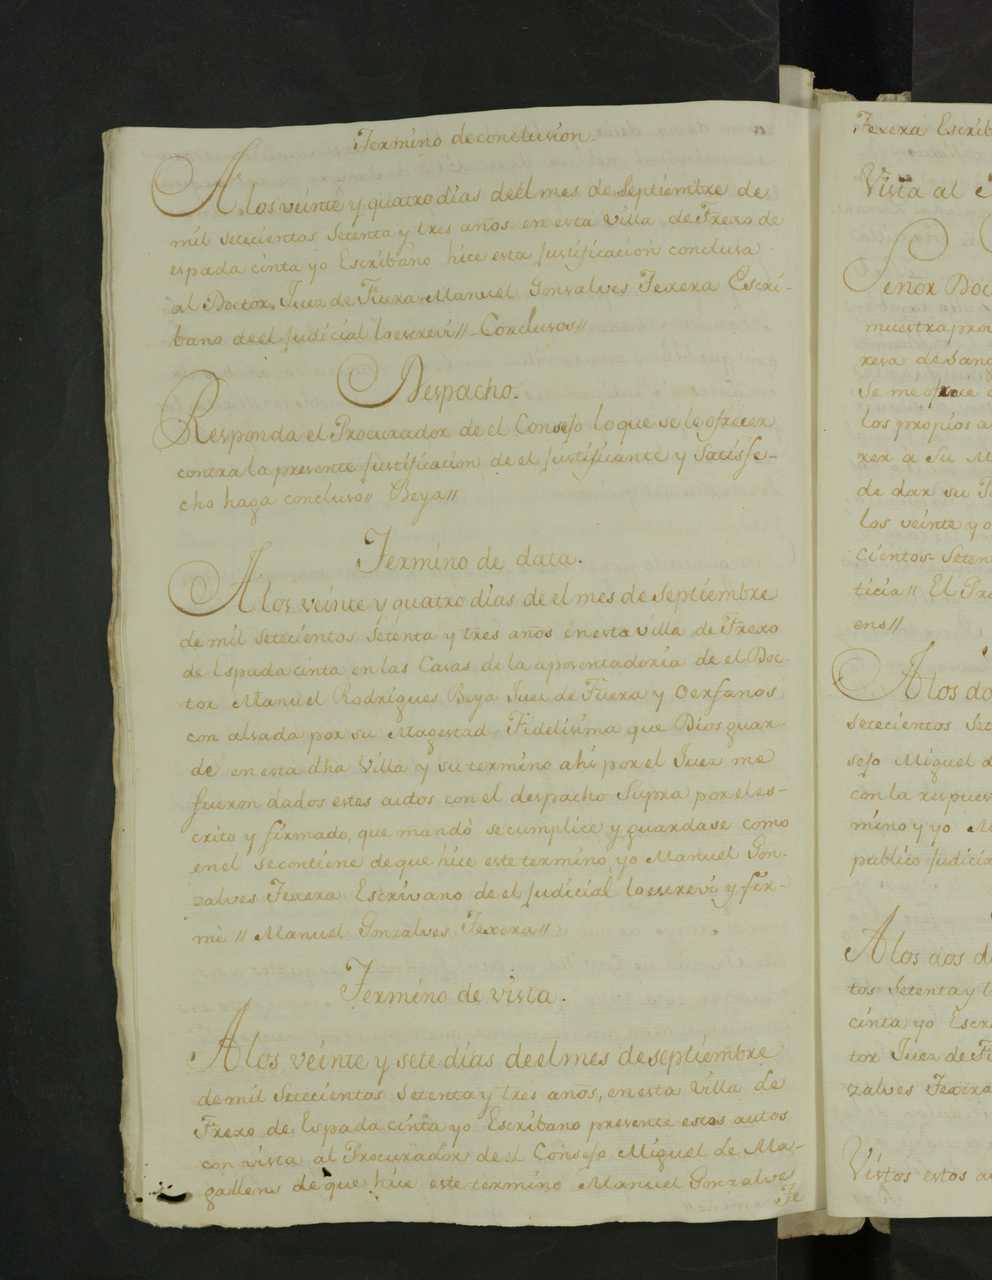 Termino de conclusion.
A los veinte y quatro dias de el mes de Septiembre de
mil setecientos setenta y tres años en esta villa de Frexo de
espada cinta yo Escribano hice esta justificacion conclusa
al Doctor Juez de Fuera Manuel Gonsalves Texera Escri-
bano de el judicial lo escrevi // Conclusos //
Despacho.
Responda el Procurador de el Consejo lo que se le ofrecer
contra la presente justificacion de el justificante y satisfe-
cho haga concluso // Beya //
Termino de data.
A los veinte y quatro dias de el mes de Septiembre
de mil setecientos setenta y tres años en esta villa de Frexo
de Espada cinta en las Casas de la aposentadoria de el Doc-
tor Manuel Rodrigues Beya Juez de Fuera y Oerfanos
con alsada por su Magestad Fidelisima que Dios guar-
de en esta dha Villa y su termino ahi por el Juez me
fueron dados estes autos con el despacho Supra por el es-
crito y firmado, que mandò se cumplice y guardase como
en el se contiene de que hice este termino, yo Manuel Gon-
zalves Texera Escrivano de el judicial lo escrevi y fir-
mè // Manuel Gonzalves Texera //
Termino de vista.
A los veinte y sete dias de el mes de septiembre
de mil Setecientos Setenta y tres años, en esta Villa de
Frexo de Espada cinta yo Escribano presente estos autos
con vista al Procurador de el Consejo Miguel de Ma-
gallens de que hice este termino Manuel Gonzalves
Te
Texera Escrib
Vista al
Señor Doc
muestra pro
rera de San
Se me ofrece
los propios a
rer a Su M
de dar su
los veinte y o
cientos Seten
ticia // El Pro
ens //
A los do
setecientos Set
sejo Miguel d
con la respues
mino y yo M
publico judicia
A los dos d
tos Setenta y t
cinta yo Escri
tor Juez de Fu
zalves Texera
Vistos estos a